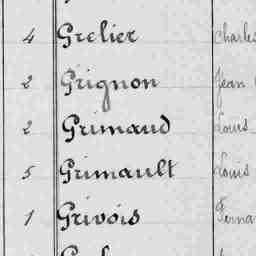 4 Grelier Charles
2 Grignon Jean
2 Grimaud Louis
5 Grimault Louis
1 Grivois